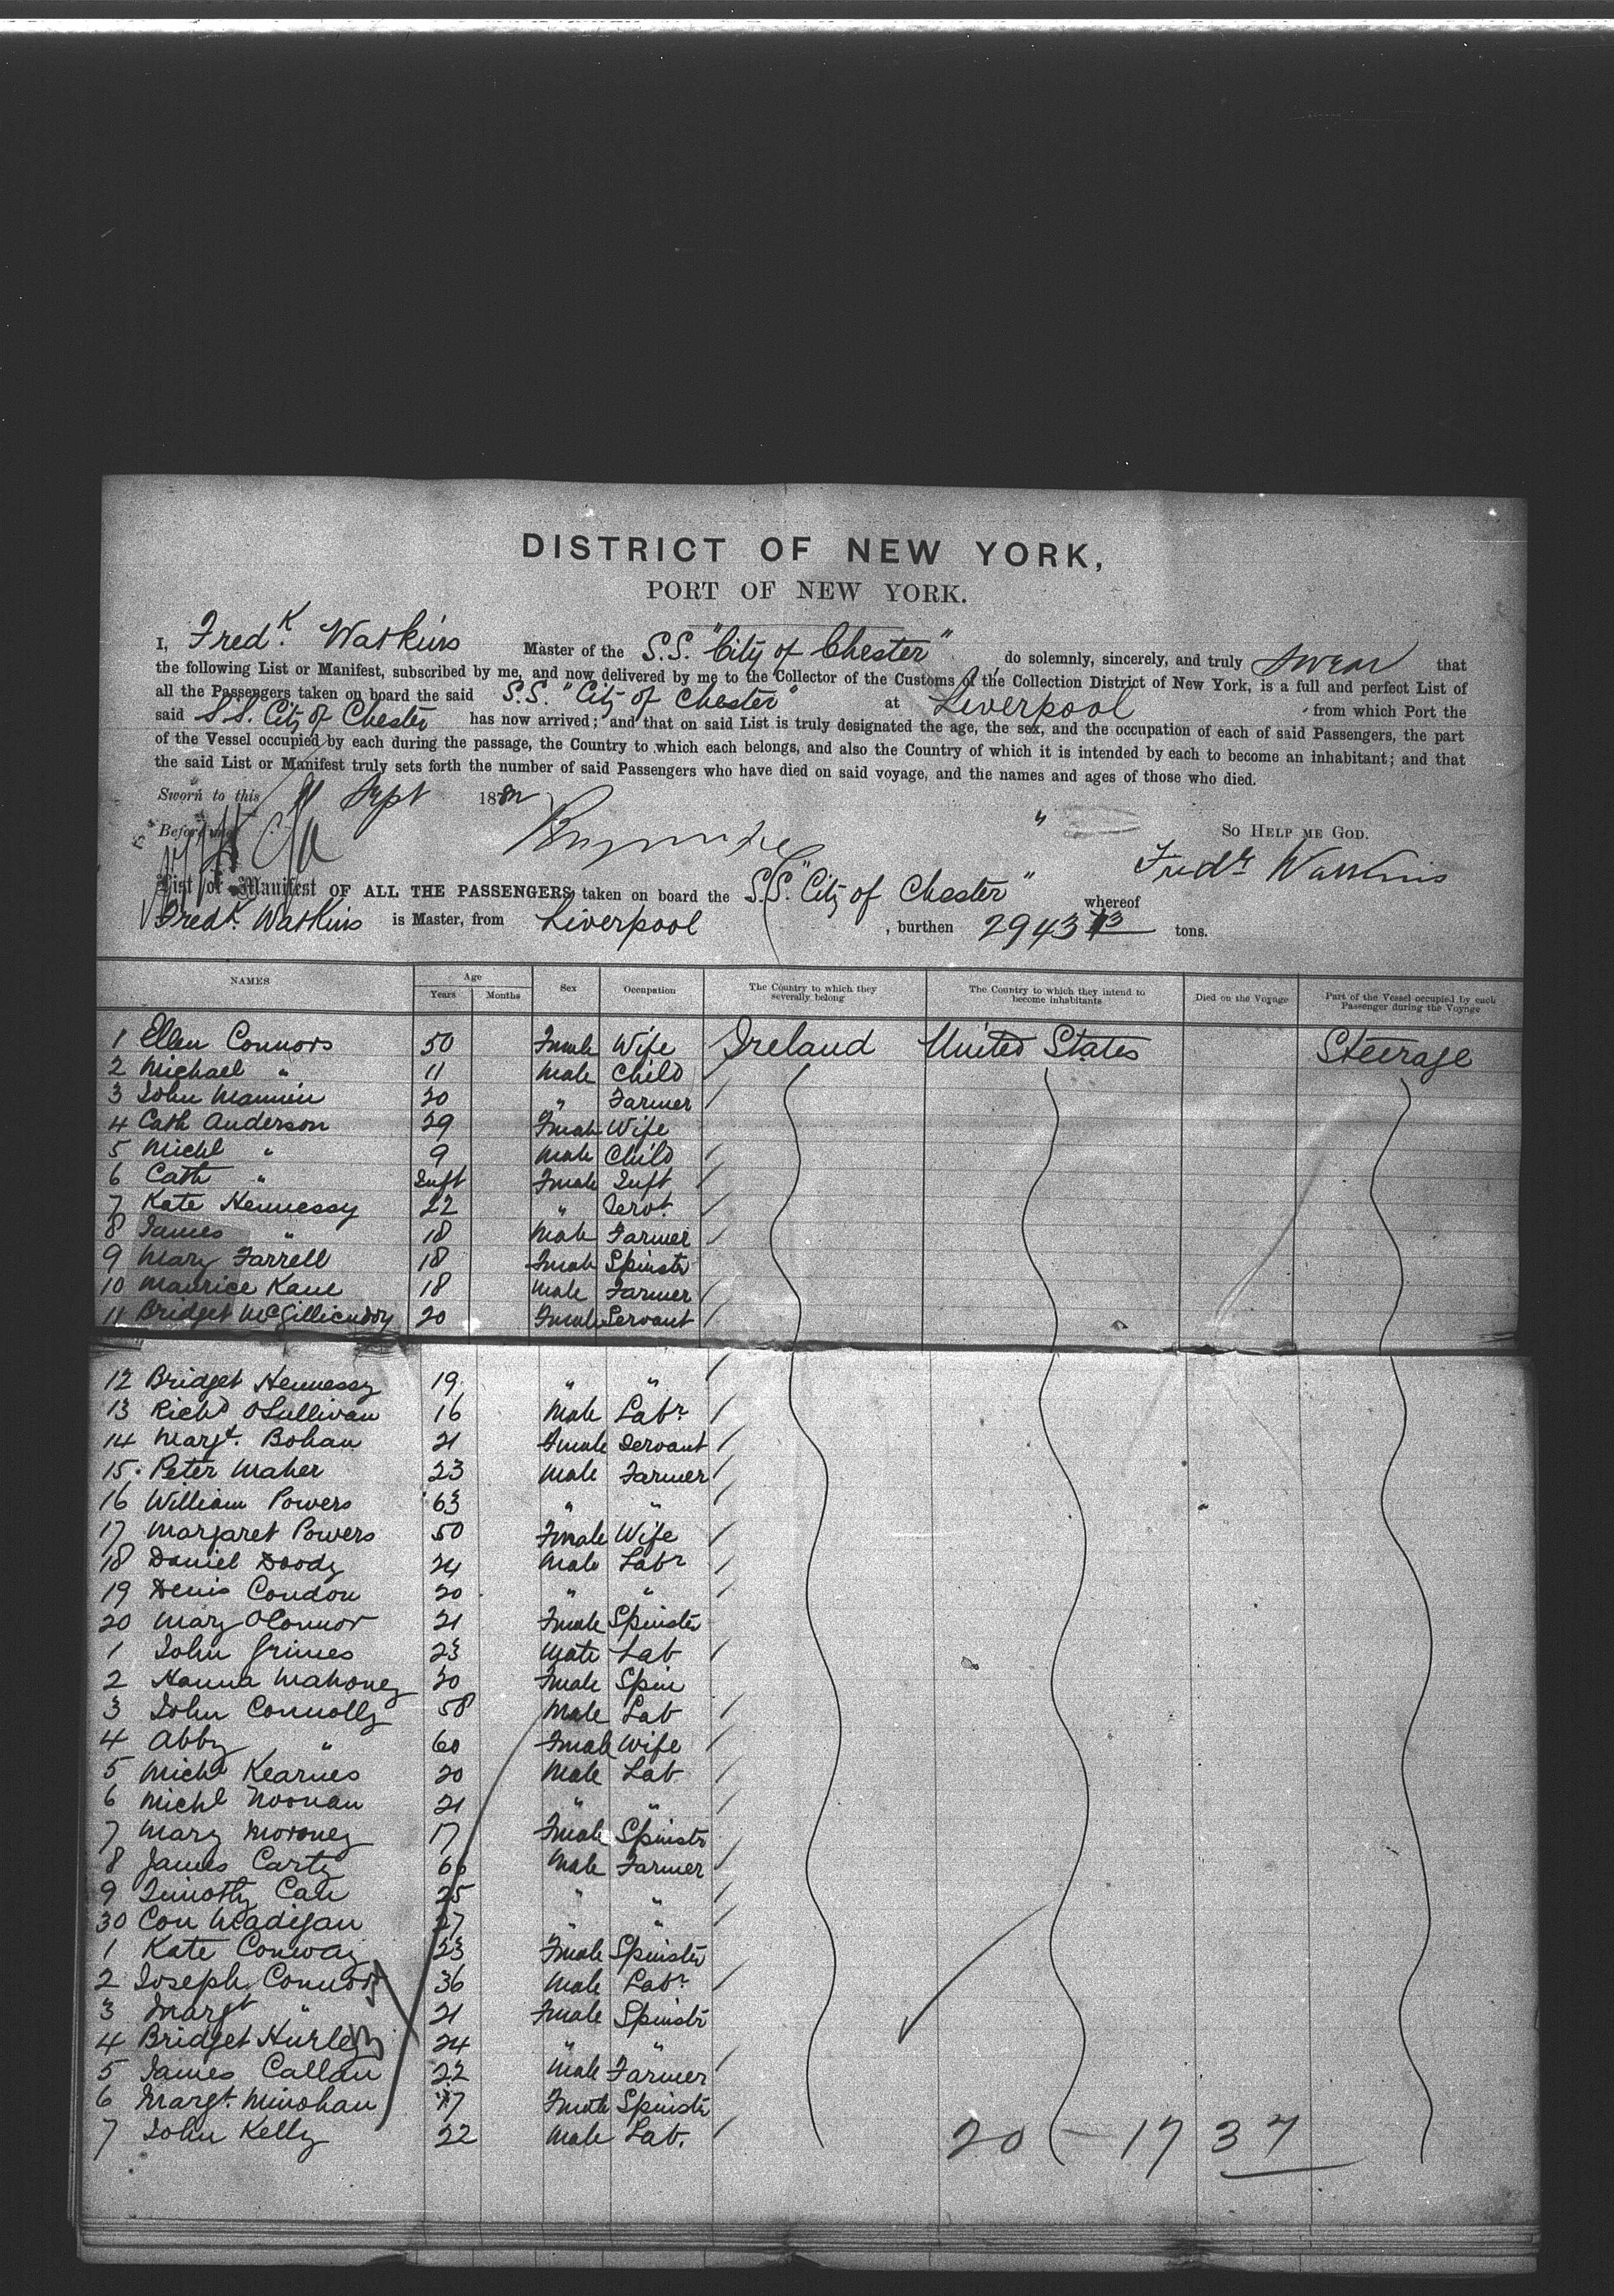 DISTRICT OF NEW YORK,
PORT OF NEW YORK.
I, Fredk. Watkins Master of the S.S. "City of Chester" do solemnly, sincerely, and truly swear that
the following List or Manifest, subscribed by me, and now delivered by me to the Collector of the Customs of the Collection District of New York, is a full and perfect List of
all the Passengers taken on board the said S.S. "City of Chester" at Liverpool from which Port the
said S.S. City of Chester has now arrived; and that on said List is truly designated the age, the sex, and the occupation of each of said Passengers, the part
of the Vessel occupied by each during the passage, the Country to which each belongs, and also the Country of which it is intended by each to become an inhabitant; and that
the said List or Manifest truly sets forth the number of said Passengers who have died on said voyage, and the names and ages of those who died.
Sworn to this Sept 188
Before me
So Help me God.
Fredk Watkins
List or Manifest OF ALL THE PASSENGERS taken on board the S.S. "City of Chester" whereof
Fredk. Watkins is Master, from Liverpool, burthen 2943 tons.
NAMES Age Years Months Sex Occupation The Country to which they severally belong The Country to which they intend to become inhabitants Died on the Voyage Part of the Vessel occupied by each Passenger during the Voyage
1 Ellen Connors 50 Female Wife Ireland United States Steerage
2 Michael " 11 Male Child
3 John 20 " Farmer
4 Cath Anderson 29 Female Wife
5 Michl " 9 Male Child
6 Cath " Inft Female Inft
7 Kate Hennessy 22 " Servt
8 James " 18 Male Farmer
9 Mary Farrell 18 Female Spinstr
10 Maurice Kane 18 Male Farmer
11 Bridget McGillicuddy 20 Female Servant
12 Bridget Hennessy 19 " "
13 Richd O'Sullivan 16 Male Labr
14 Margt. Bohan 21 Female Servant
15 Peter Maher 23 Male Farmer
16 William Powers 63 " "
17 Margaret Powers 50 Female Wife
18 Daniel Doody 24 Male Labr
19 Denis Condon 20 " "
20 Mary O'Connor 21 Female Spinster
1 John Grimes 23 Male Lab
2 Hanna Mahoney 20 Female Spin
3 John Connolly 58 Male Lab
4 Abby " 60 Female Wife
5 Michl Kearnes 20 Male Lab
6 Michl Noonan 21 " "
7 Mary Moroney 17 Female Spinstr
8 James Carty 66 Male Farmer
9 Timothy 25 " "
30 Con Madigan 27 " "
1 Kate Conway 23 Female Spinster
2 Joseph Connors 36 Male Labr
3 Margt " 21 Female Spinstr
4 Bridget Hurley 24 " "
5 James Callan 22 Male Farmer
6 Margt. Minohan 17 Female Spinstr
7 John Kelly 22 Male Lab.
20 - 17 37